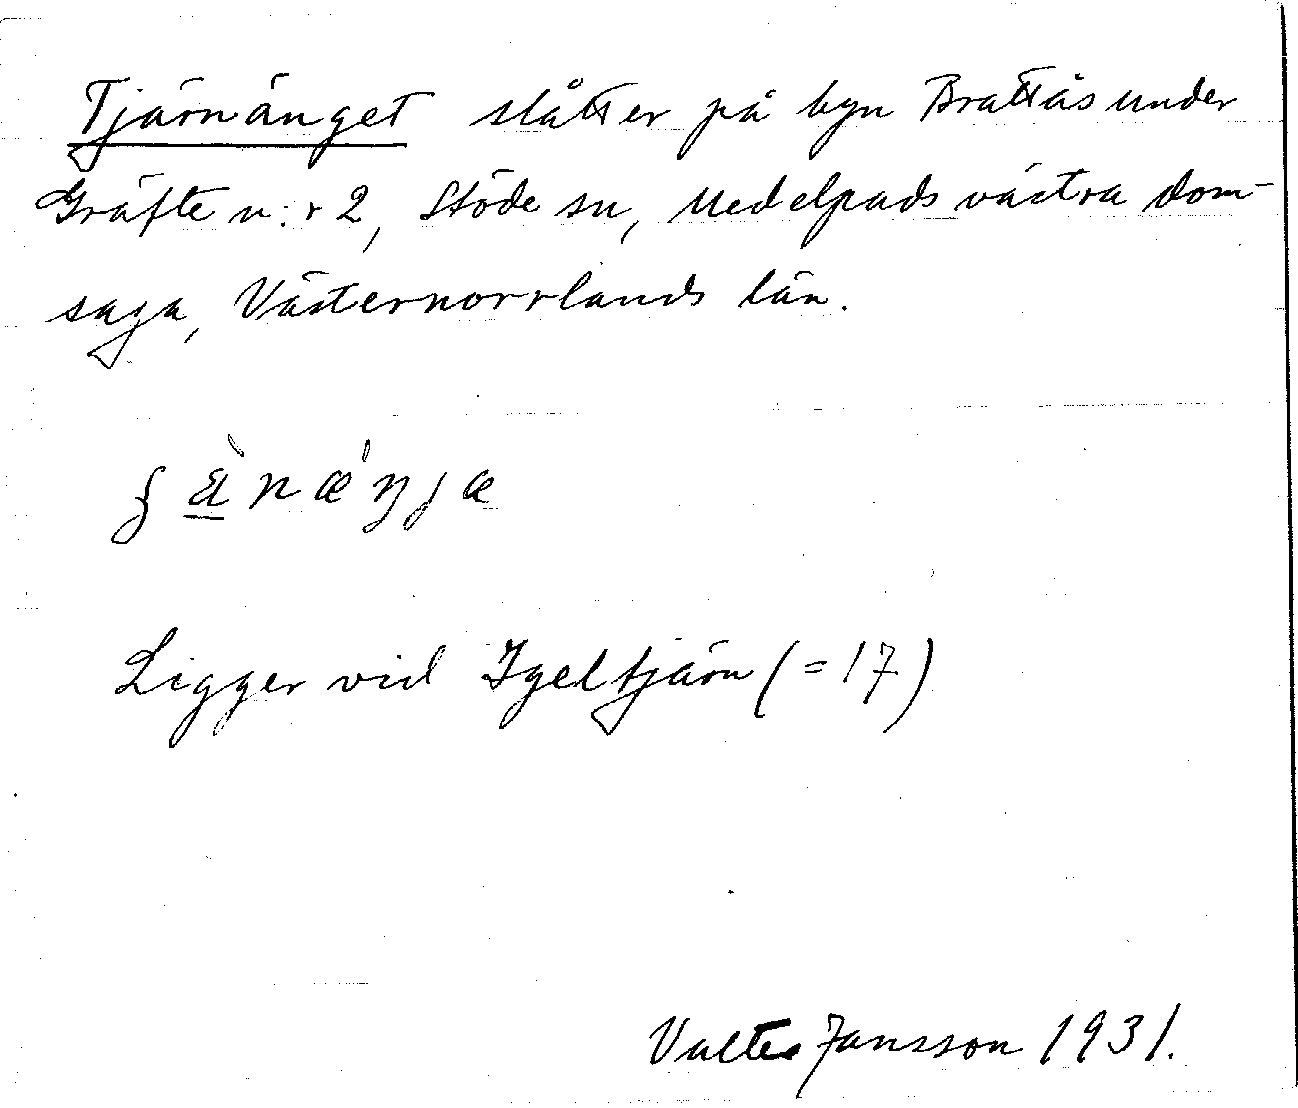 Tjärnänget slåtter på byn Brattås under
Gräfte n:r 2, Stöde sn, Medelpads västra dom-
saga, Västernorrlands län.
Ligger vid Igeltjärn (=17)
Valter Jansson 1931.